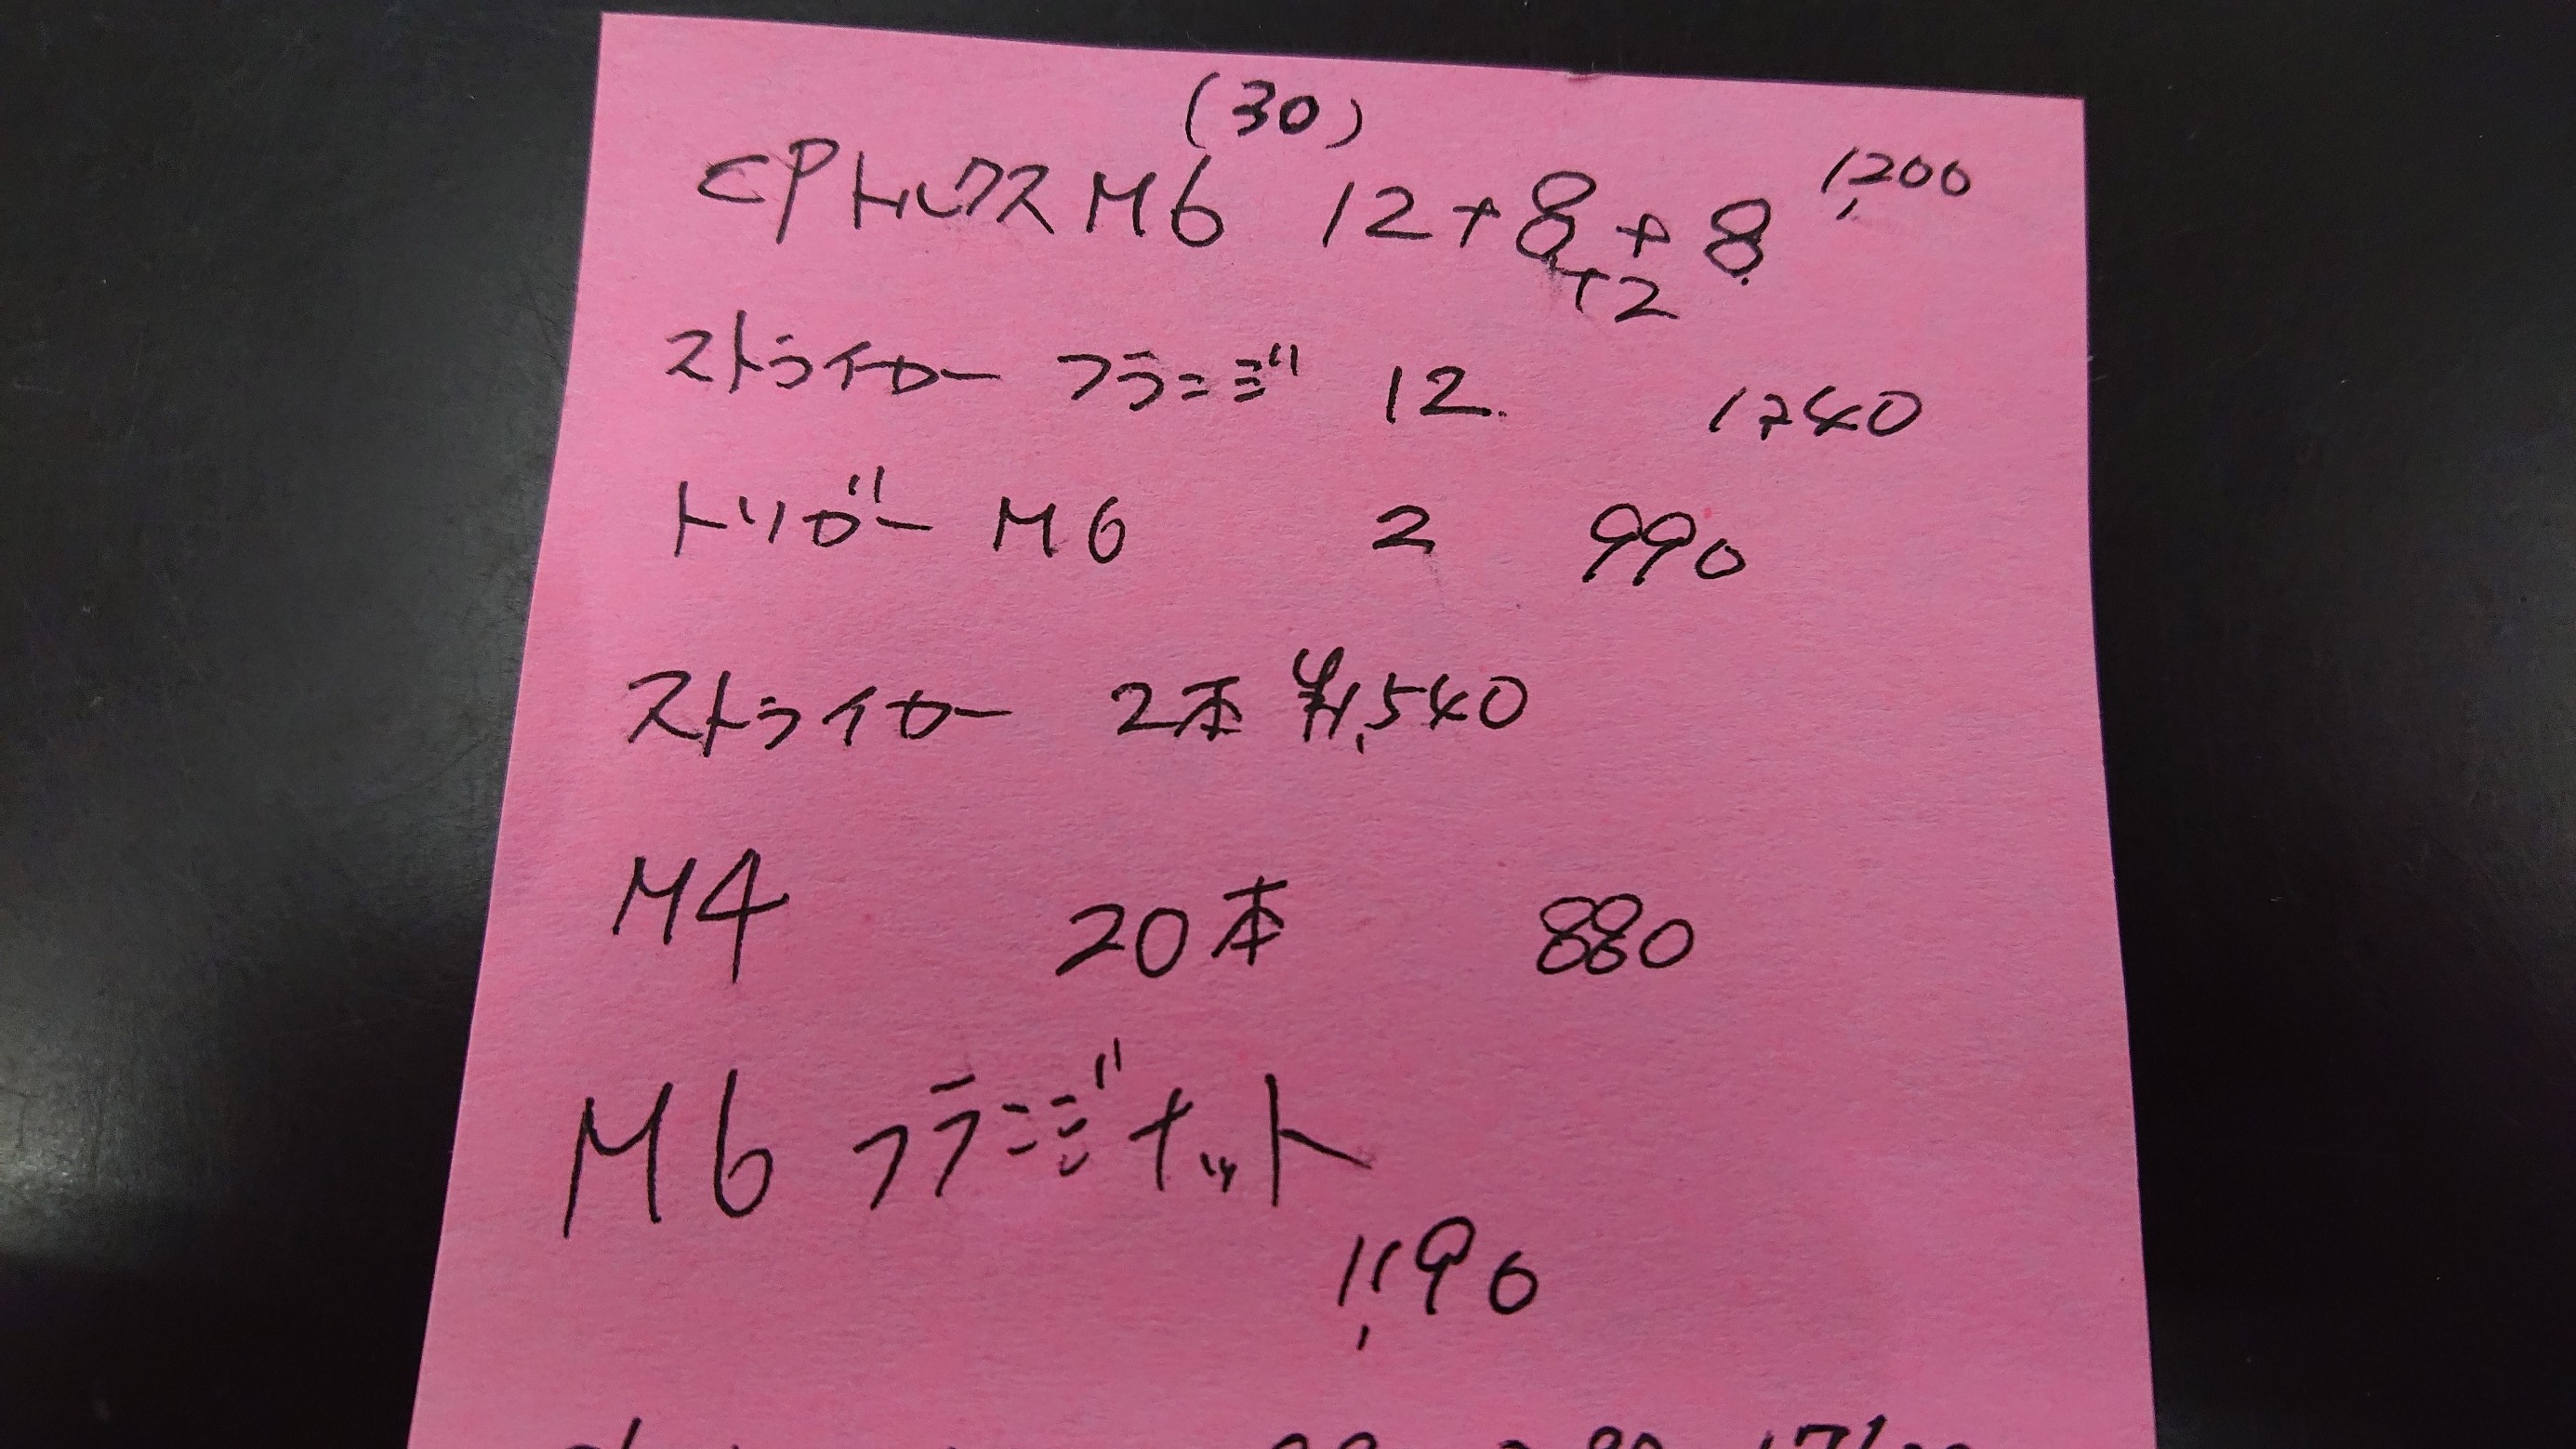 (30)
CPトルクス M6 12+8+8 1,200
+2
ストライカー フランジ 12 1,240
トリガー M6 2 990
ストライカー 2本 ¥1,540
M4 20本 880
M6 フランジナット
1,190